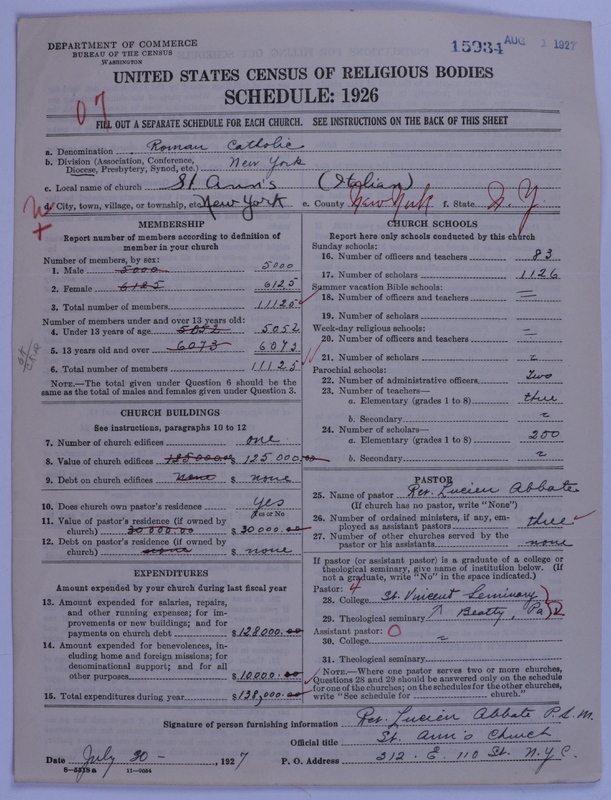 DEPARTMENT OF COMMERCE
BUREAU OF THE CENSUS
WASHINGTON
15934 AUG 1927
UNITED STATES CENSUS OF RELIGIOUS BODIES
SCHEDULE: 1926
07
FILL OUT A SEPARATE SCHEDULE FOR EACH CHURCH. SEE INSTRUCTIONS ON THE BACK OF THIS SHEET
a. Denomination Roman Catholic
b. Division (Association, Conference, Diocese, Presbytery, Synod, etc.) New York
c. Local name of church St. Ann's (Italian)
d. City, town, village, or township, etc. New York e. County New York f. State N.Y.
MEMBERSHIP
Report number of members according to definition of
member in your church
Number of members, by sex:
1. Male 5000 5000
2. Female 6125 6125
3. Total number of members 11125
Number of members under and over 13 years old:
4. Under 13 years of age 5052 5052
5. 13 years old and over 6073 6073
6. Total number of members 11125
NOTE.—The total given under Question 6 should be the
same as the total of males and females given under Question 3.
CHURCH BUILDINGS
See instructions, paragraphs 10 to 12
7. Number of church edifices one
8. Value of church edifices 125000.00 $ 125000.00
9. Debt on church edifices none $ none
10. Does church own pastor's residence yes
Yes or No
11. Value of pastor's residence (if owned by
church) 30000.00 $ 30000.00
12. Debt on pastor's residence (if owned by
church) none $ none
EXPENDITURES
Amount expended by your church during last fiscal year
13. Amount expended for salaries, repairs,
and other running expenses; for im-
provements or new buildings; and for
payments on church debt $ 128000.00
14. Amount expended for benevolences, in-
cluding home and foreign missions; for
denominational support; and for all
other purposes $ 10000.00
15. Total expenditures during year $ 138,000.00
CHURCH SCHOOLS
Report here only schools conducted by this church
Sunday schools:
16. Number of officers and teachers 83
17. Number of scholars 1126
Summer vacation Bible schools:
18. Number of officers and teachers
19. Number of scholars
Week-day religious schools:
20. Number of officers and teachers
21. Number of scholars
Parochial schools:
22. Number of administrative officers two
23. Number of teachers—
a. Elementary (grades 1 to 8) three
b. Secondary
24. Number of scholars—
a. Elementary (grades 1 to 8) 200
b. Secondary
PASTOR
25. Name of pastor Rev. Lucien Abbate
(If church has no pastor, write "None")
26. Number of ordained ministers, if any, em-
ployed as assistant pastors three
27. Number of other churches served by the
pastor or his assistants none
If pastor (or assistant pastor) is a graduate of a college or
theological seminary, give name of institution below. (If
not a graduate, write "No" in the space indicated.)
Pastor: 4
28. College St. Vincent Seminary
29. Theological seminary Beatty, Pa
Assistant pastor: 0
30. College
31. Theological seminary
NOTE.—Where one pastor serves two or more churches,
Questions 28 and 29 should be answered only on the schedule
for one of the churches; on the schedules for the other churches,
write "See schedule for church."
Signature of person furnishing information Rev. Lucien Abbate P.S.M.
Official title St. Ann's Church
Date July 30 - , 1927 P. O. Address 312. E. 110 St. N.Y.C.
8-5318a 11-9084